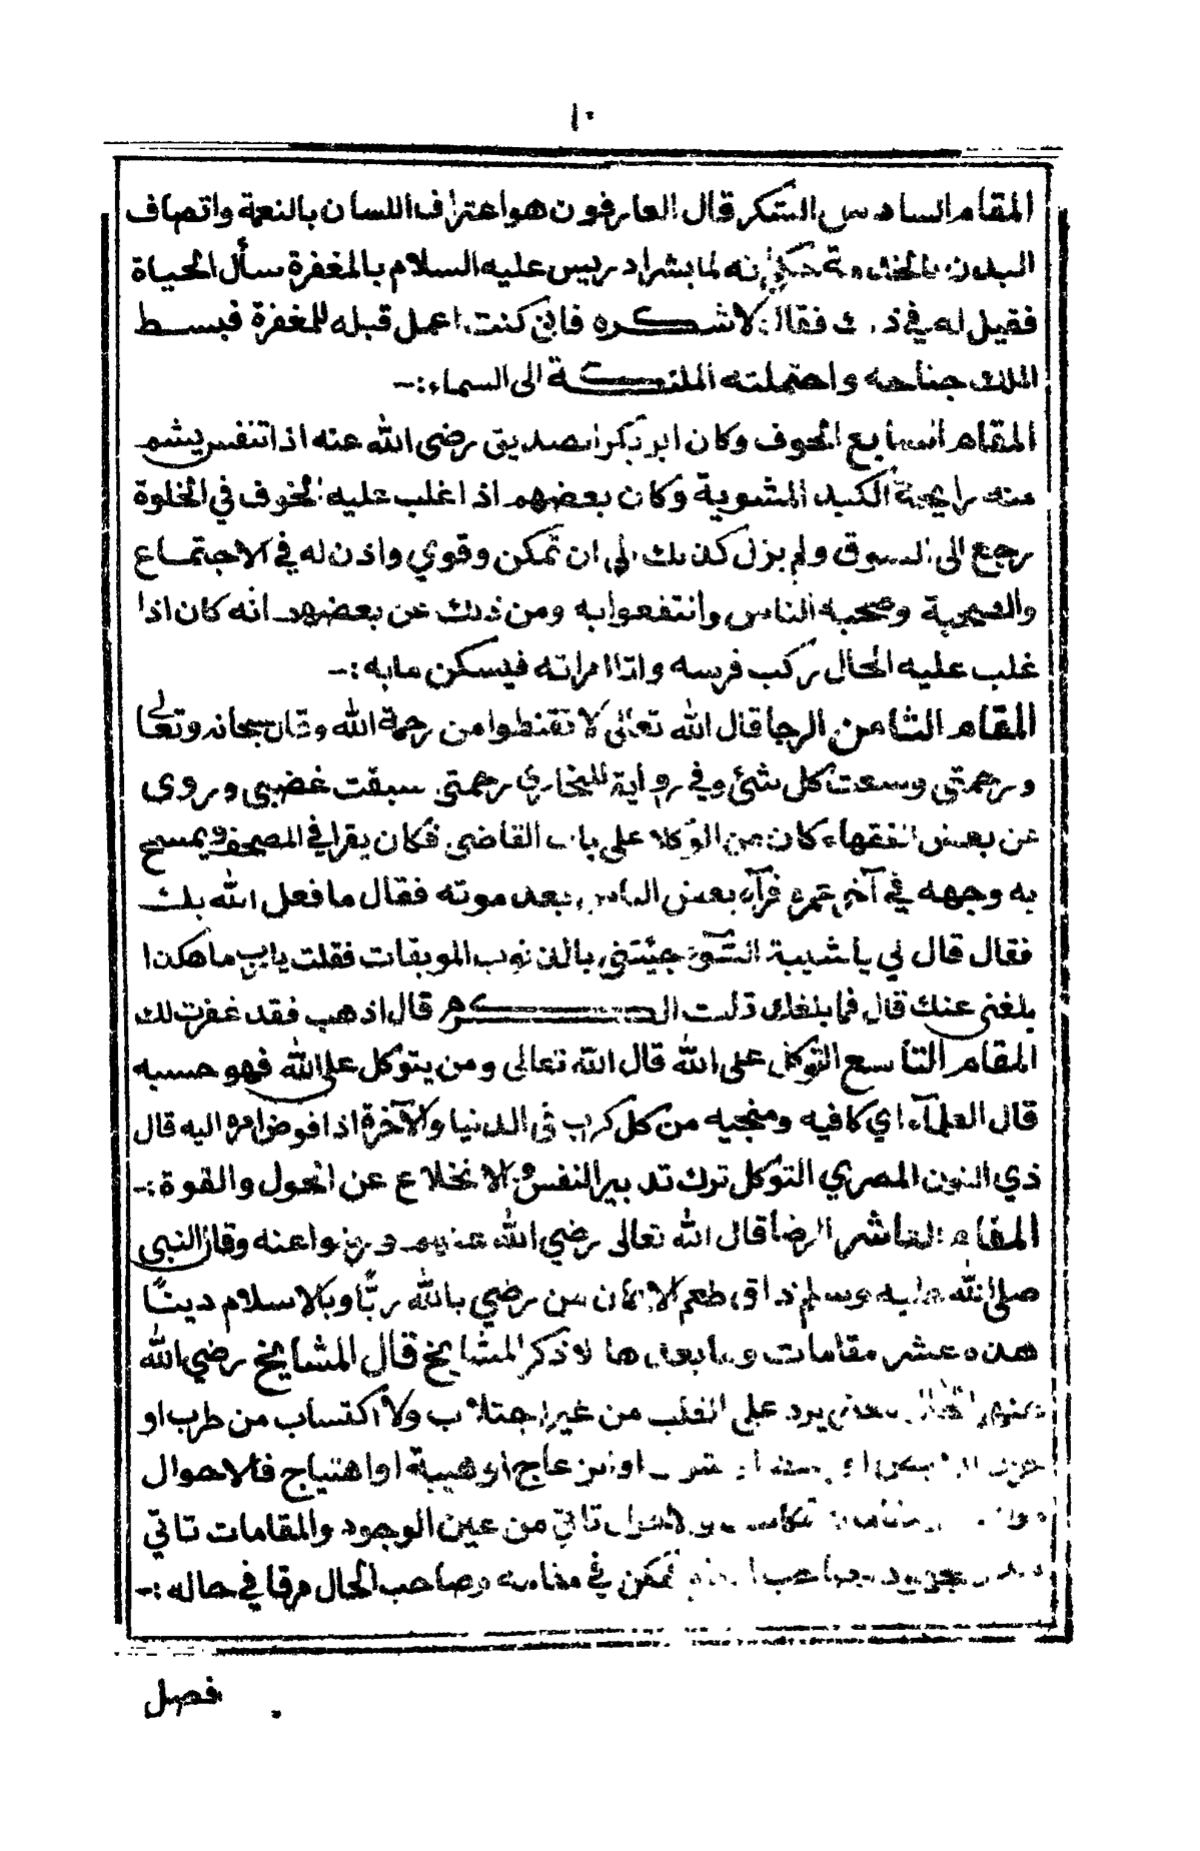 ١٠
المقام السادس الشكر قال العارفون هو اعتراف اللسان بالنعمة واتصاف
البدن بالخدمة حكي انه لما بشر ادريس عليه السلام بالمغفرة سأل الحياة
فقيل له في ذلك فقال لاشكره فاني كنت اعمل قبله للمغفرة فبسط
الملك جناحه واحتملته الملئكة الى السماء :-
المقام السابع الخوف وكان ابو بكر الصديق رضي الله عنه اذا تنفس يشم
منه رايحة الكبد المشوية وكان بعضهم اذا غلب عليه الخوف في الخلوة
رجع الى السوق ولم يزل كذلك الى ان تمكن وقوي واذن له في الاجتماع
والصحبة وصحبه الناس وانتفعوا به ومن ذلك عن بعضهم انه كان اذا
غلب عليه الحال ركب فرسه واتا امراته فيسكن مابه :-
المقام الثامن الرجا قال الله تعالى لا تقنطوا من رحمة الله وقال سبحانه وتعالى
ورحمتي وسعت كل شئ وفي رواية للبخاري رحمتي سبقت غضبي وروى
عن بعض الفقهاء كان من الوكلا على باب القاضي فكان يقرا في المصحف ويمسح
به وجهه في آخر عمره فرآه بعض الناس بعد موته فقال ما فعل الله بك
فقال قال لي يا شيبة السوء جئتني بالذنوب الموبقات فقلت يا رب ما هكذا
بلغني عنك قال فما بلغك قلت الكرم قال اذهب فقد غفرت لك
المقام التاسع التوكل على الله قال الله تعالى ومن يتوكل على الله فهو حسبه
قال العلمآء اي كافيه ومنجيه من كل كرب في الدنيا والآخرة اذا فوض امره اليه قال
ذي النون المصري التوكل ترك تدبير النفس والانخلاع عن الحول والقوة :-
المقام العاشر الرضا قال الله تعالى رضي الله عنهم ورضوا عنه وقال النبي
صلى الله عليه وسلم ذاق طعم الايمان من رضي بالله ربًّا وبالاسلام دينًا
هذه عشر مقامات وما بعدها لا ذكر المشايخ قال المشايخ رضي الله
عنهم الحال معنى يرد على القلب من غير اجتلاب ولا اكتساب من طرب او
حزن او او انزعاج او هيبة او اهتياج فالاحوال
تاتي من عين الوجود والمقامات تاتي
تمكن في مقامه وصاحب الحال مرقا في حاله :-
فصل